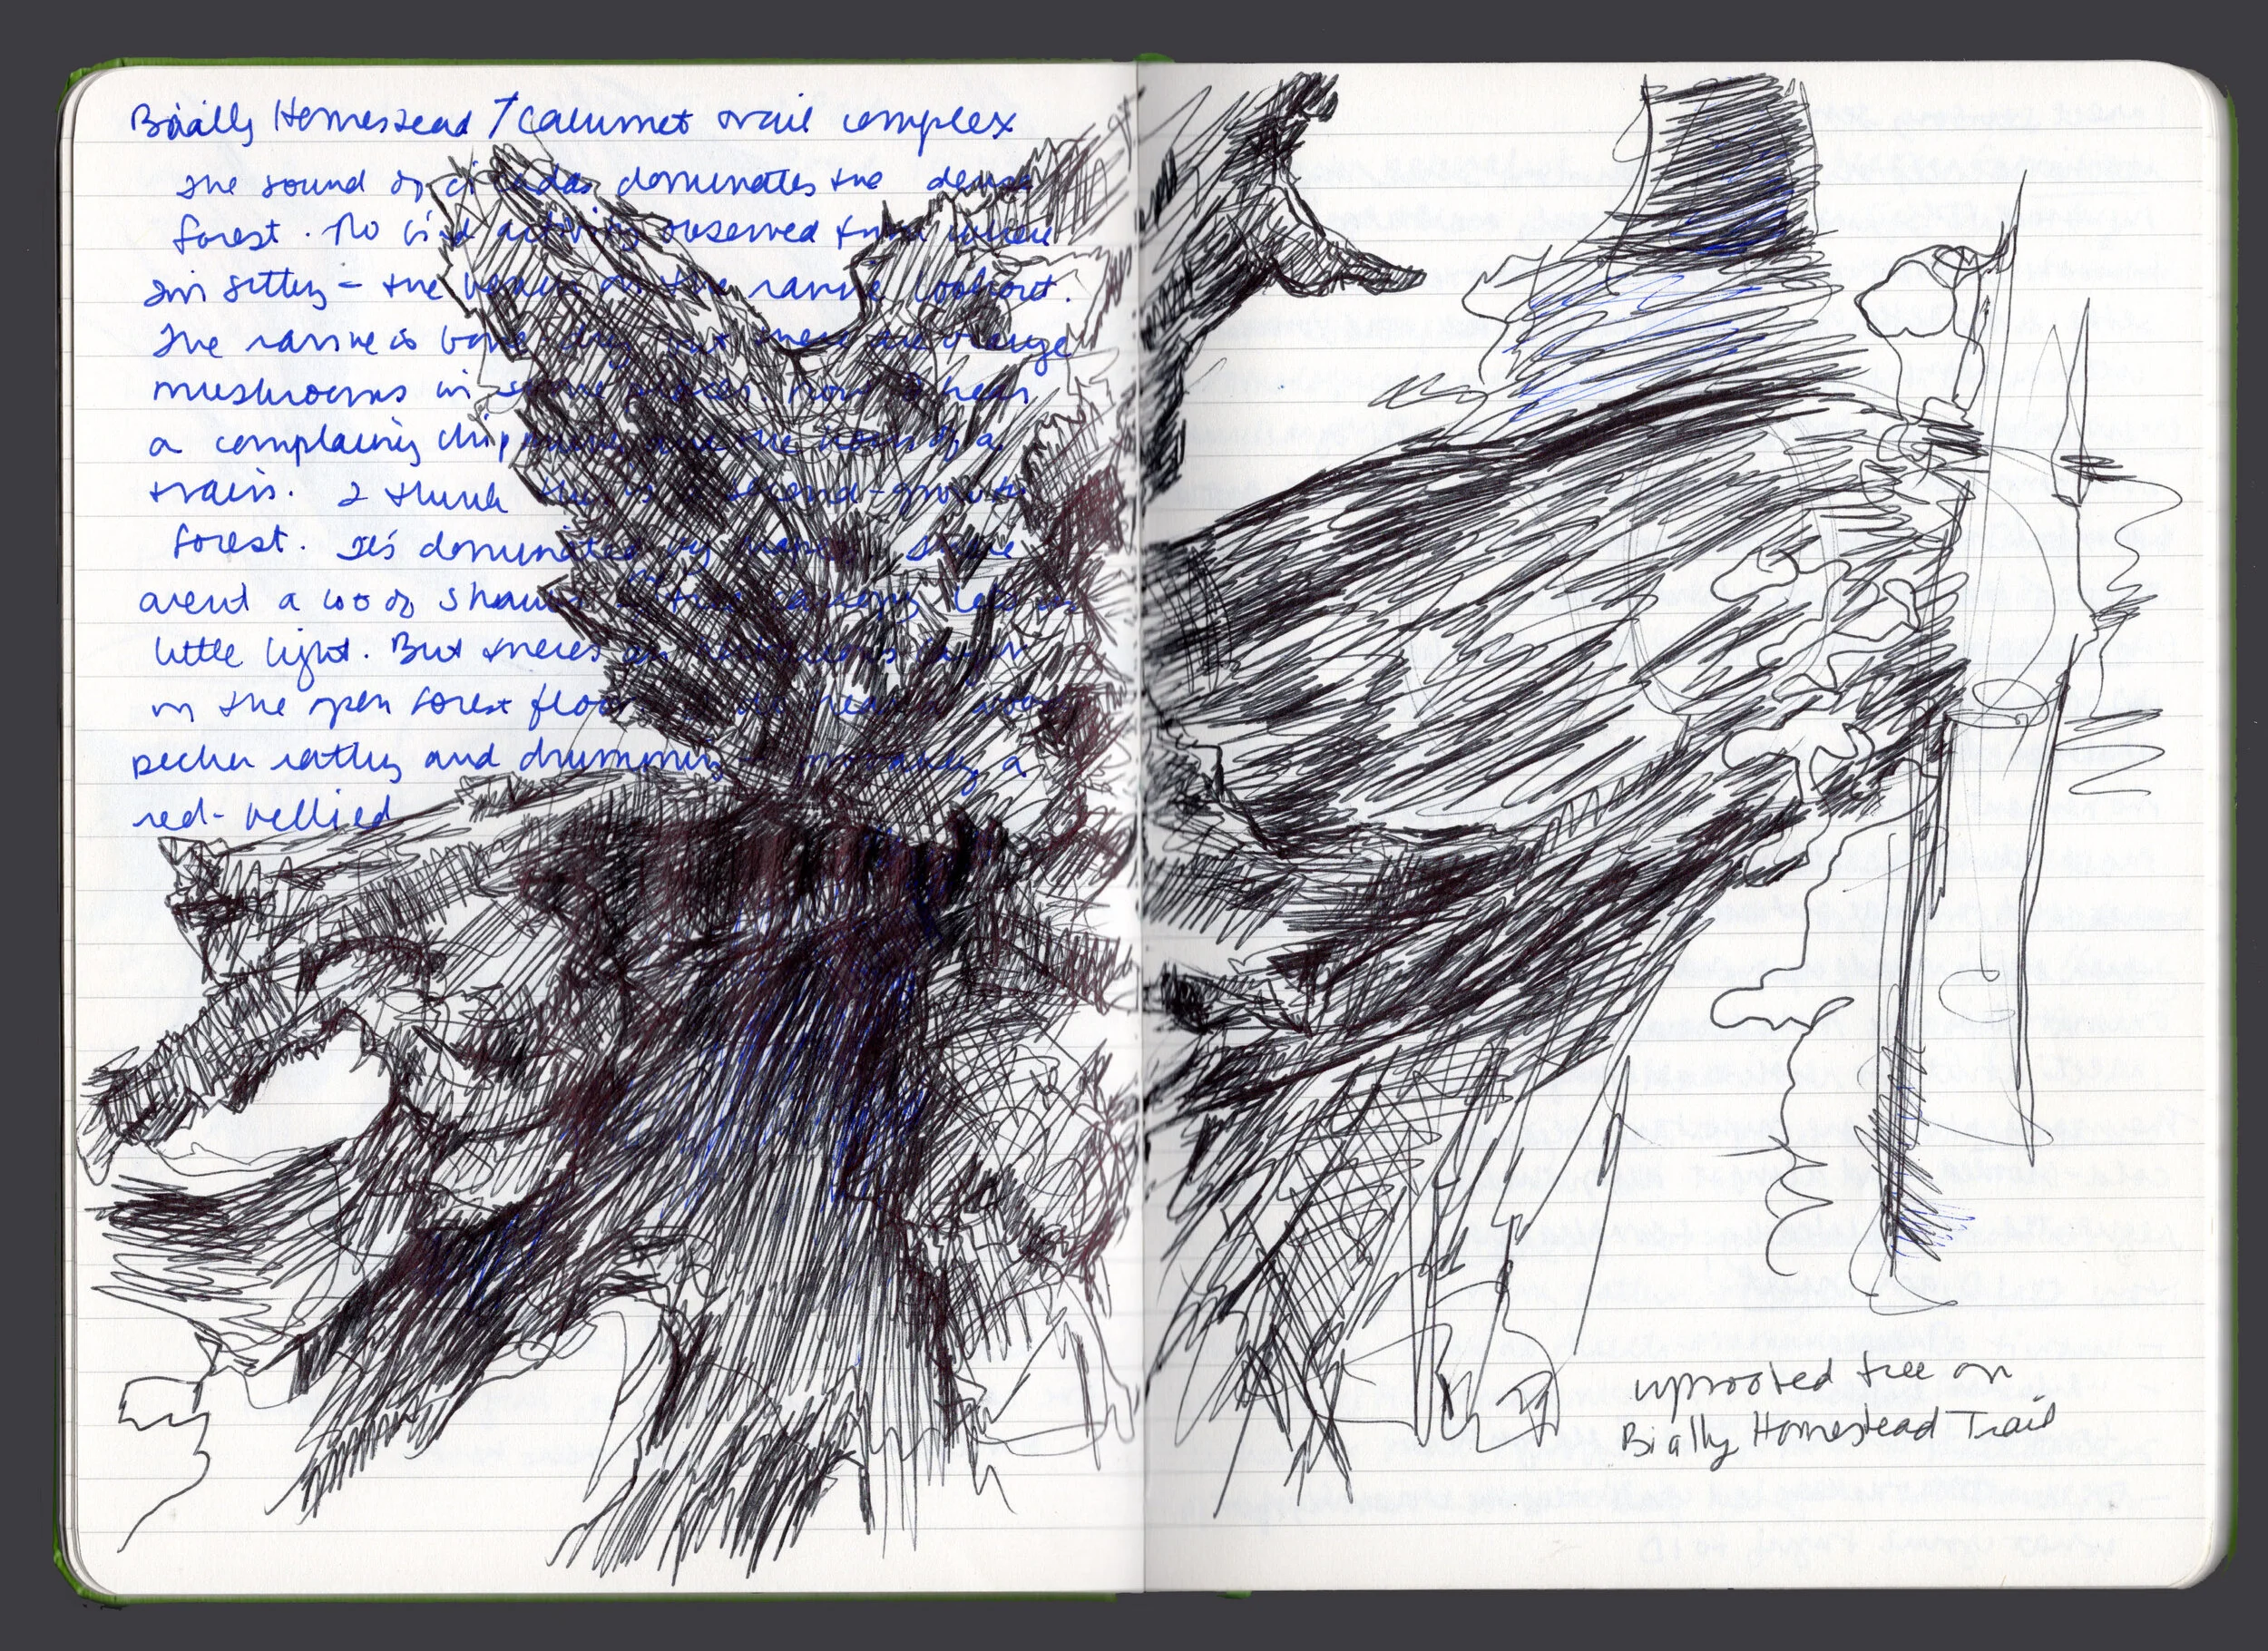 Biially Homestead / Calumet trail complex
The sound of cicadas dominates the dense
forest. No bird activity observed from where
I'm sitting – the bench at the ravine lookout.
The ravine is bone dry but there are orange
mushrooms in some places. Now I hear
a complaining chipmunk and the horn of a
train. I think this is a second-growth
forest. It's dominated by maple. There
arent a lot of shrubs – the canopy lets in
little light. But there's an
on the open forest floor. I do hear a wood
pecker rattling and drumming – probably a
red-bellied
uprooted tree on
Bially Homestead Trail